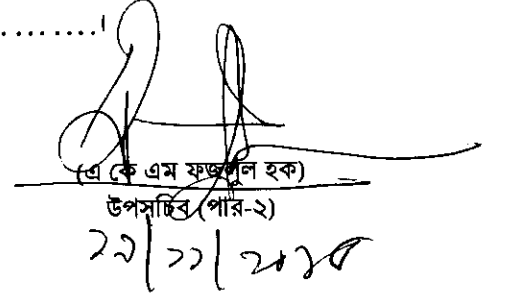 ..........।
(এ কে এম ফজলুল হক)
উপসচিব (পার-২)
২৯/১১/২০১৮